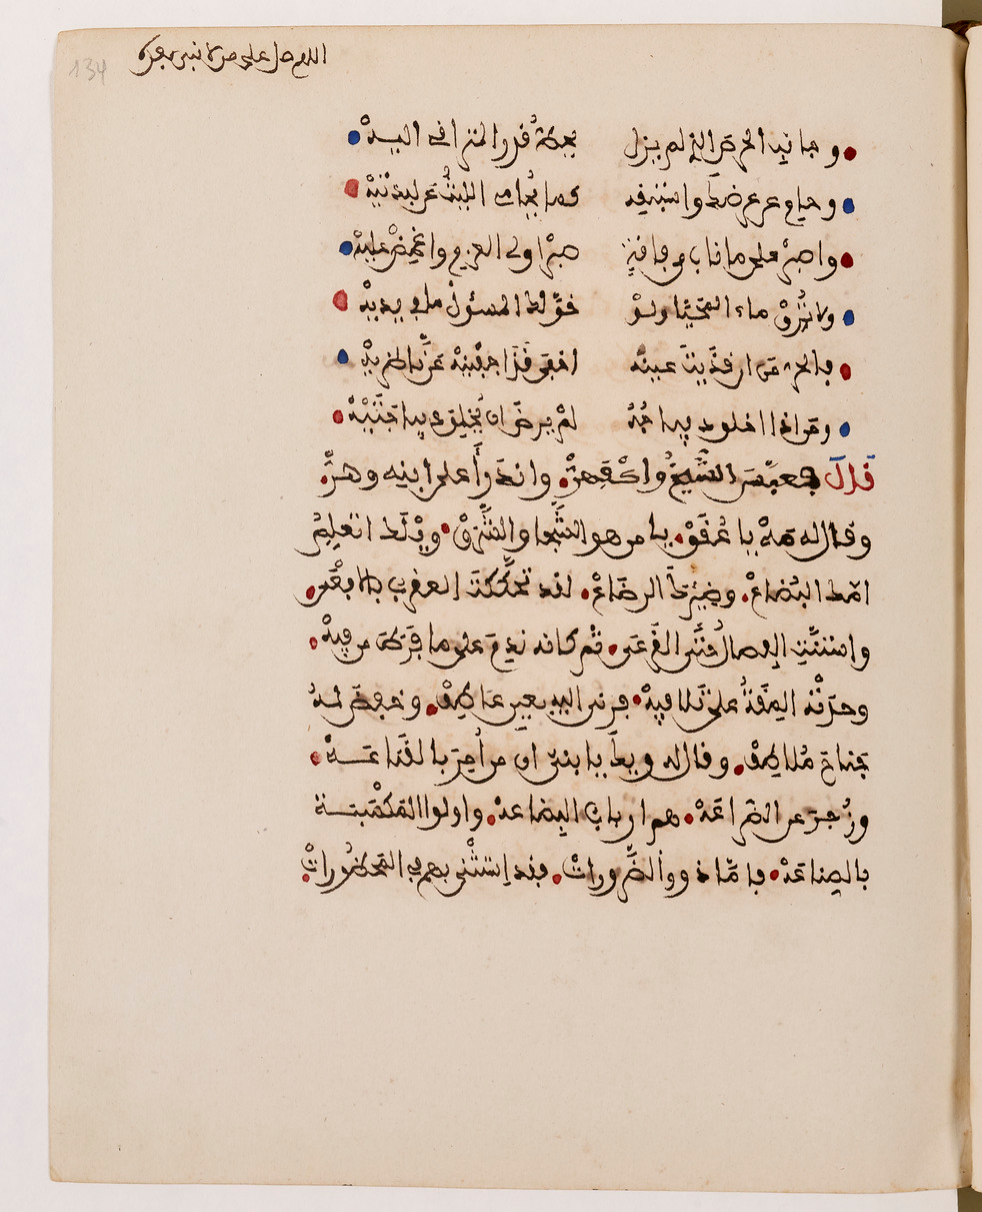 اللهم صل على من لا نبي بعده
وجانب الحرص الذي لم يزل يحط قدر المتراقي اليه
وحام عن عرضك واستبقه كما يحامي الليث عن لبدتيه
واصبر على ما ناب من فاقة صبر اولي العزم واغمض عليه
ولا ترق ماء المحيا ولو خولك المسئول ما في يديه
فالحر من ان قذيت عينه اخفى قذا جفنيه عن ناظريه
ومن اذا اخلولق ديباجه لم يرض ان يخلق ديباجتيه
قال فعبس الشيخ واكفهر وانذرأ على ابنه وهر
وقال له مه يا عقق يا من هو الشجا والشرق ويلك اتعلم
امك البضاع وضيرك الرضاع لقد تحككت العقرب بالافعى
واستنت الفصال حتى القرعى ثم كانه ندم على ما فرط من فيه
وحدته المقة على تلافيه فرنى اليه بعين عاطف وخفض له
جناح ملاطف وقال له ويك يا بني ان من أمر بالقناعه
وزجر عن الضراعه هم ارباب البضاعه واولوا المكسبة
بالصناعه فاما ذووا الضرورات فقد استثني بهم في المحظورات